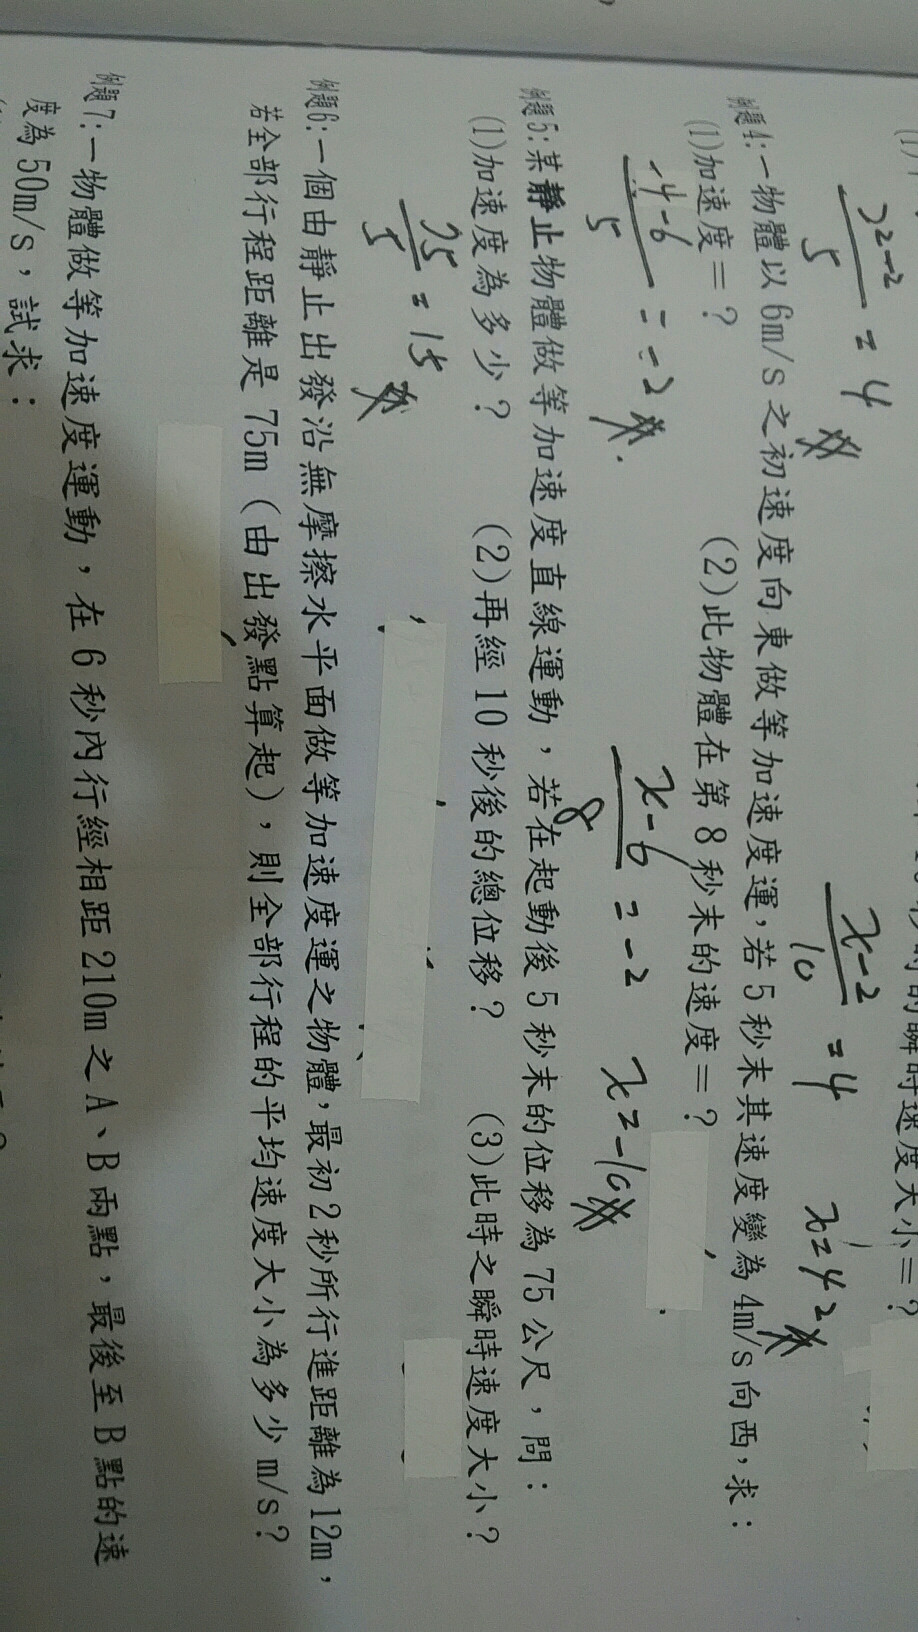 (1)
22-2/5 = 4
x-2/10 = 4 x=42
秒時的瞬時速度大小=?
例題4:一物體以6m/s之初速度向東做等加速度運,若5秒末其速度變為4m/s向西,求:
(1)加速度=? (2)此物體在第8秒末的速度=?
-4-6/5 = -2
x-6/8 = -2 x=-10
例題5:某靜止物體做等加速度直線運動,若在起動後5秒末的位移為75公尺,問:
(1)加速度為多少? (2)再經10秒後的總位移? (3)此時之瞬時速度大小?
75/5 = 15
例題6:一個由靜止出發沿無摩擦水平面做等加速度運之物體,最初2秒所行進距離為12m,
若全部行程距離是75m(由出發點算起),則全部行程的平均速度大小為多少m/s?
例題7:一物體做等加速度運動,在6秒內行經相距210m之A、B兩點,最後至B點的速
度為50m/s,試求: